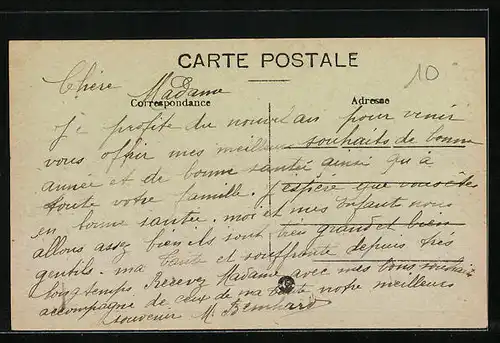 CARTE POSTALE
10
Chère Madame
Correspondance
Adresse
Je profite du nouvel an pour venir
vous offrir mes meilleurs souhaits de bonne
année et de bonne santée ainsi qu'à
toute votre famille. J'espère que vous êtes
en bonne santée. moi et mes Enfants nous
allons assez bien ils sont très grand et bien
gentils. ma tante est souffrante depuis très
longtemps Recevez Madame avec mes bons souhaits
accompagne de ceux de ma tante notre meilleurs
souvenir M. Bernhard